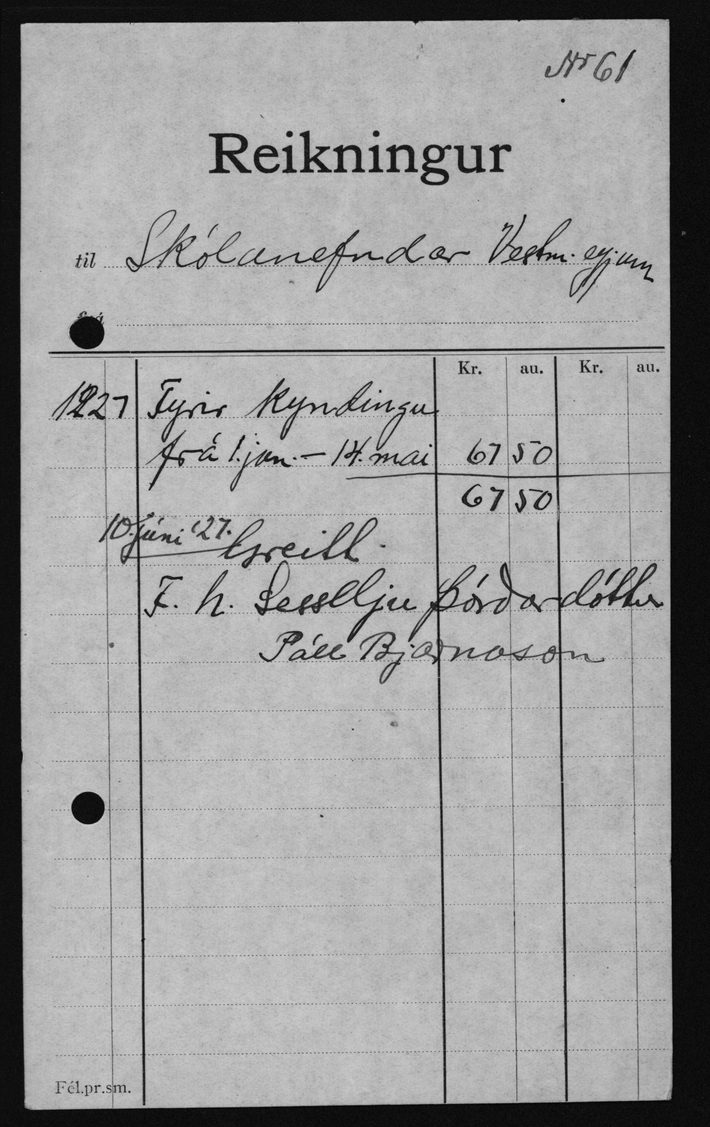 Nr 61
Reikningur
til Skólanefndar Vestm.eyjum
frá
Kr. au. Kr. au.
1927 Fyrir kyndingu
frá 1. jan. – 14. mai 67 50
67 50
10. júní '27.
Greitt.
F. h. Sesselju Þórðardóttur
Páll Bjarnason
Fél.pr.sm.